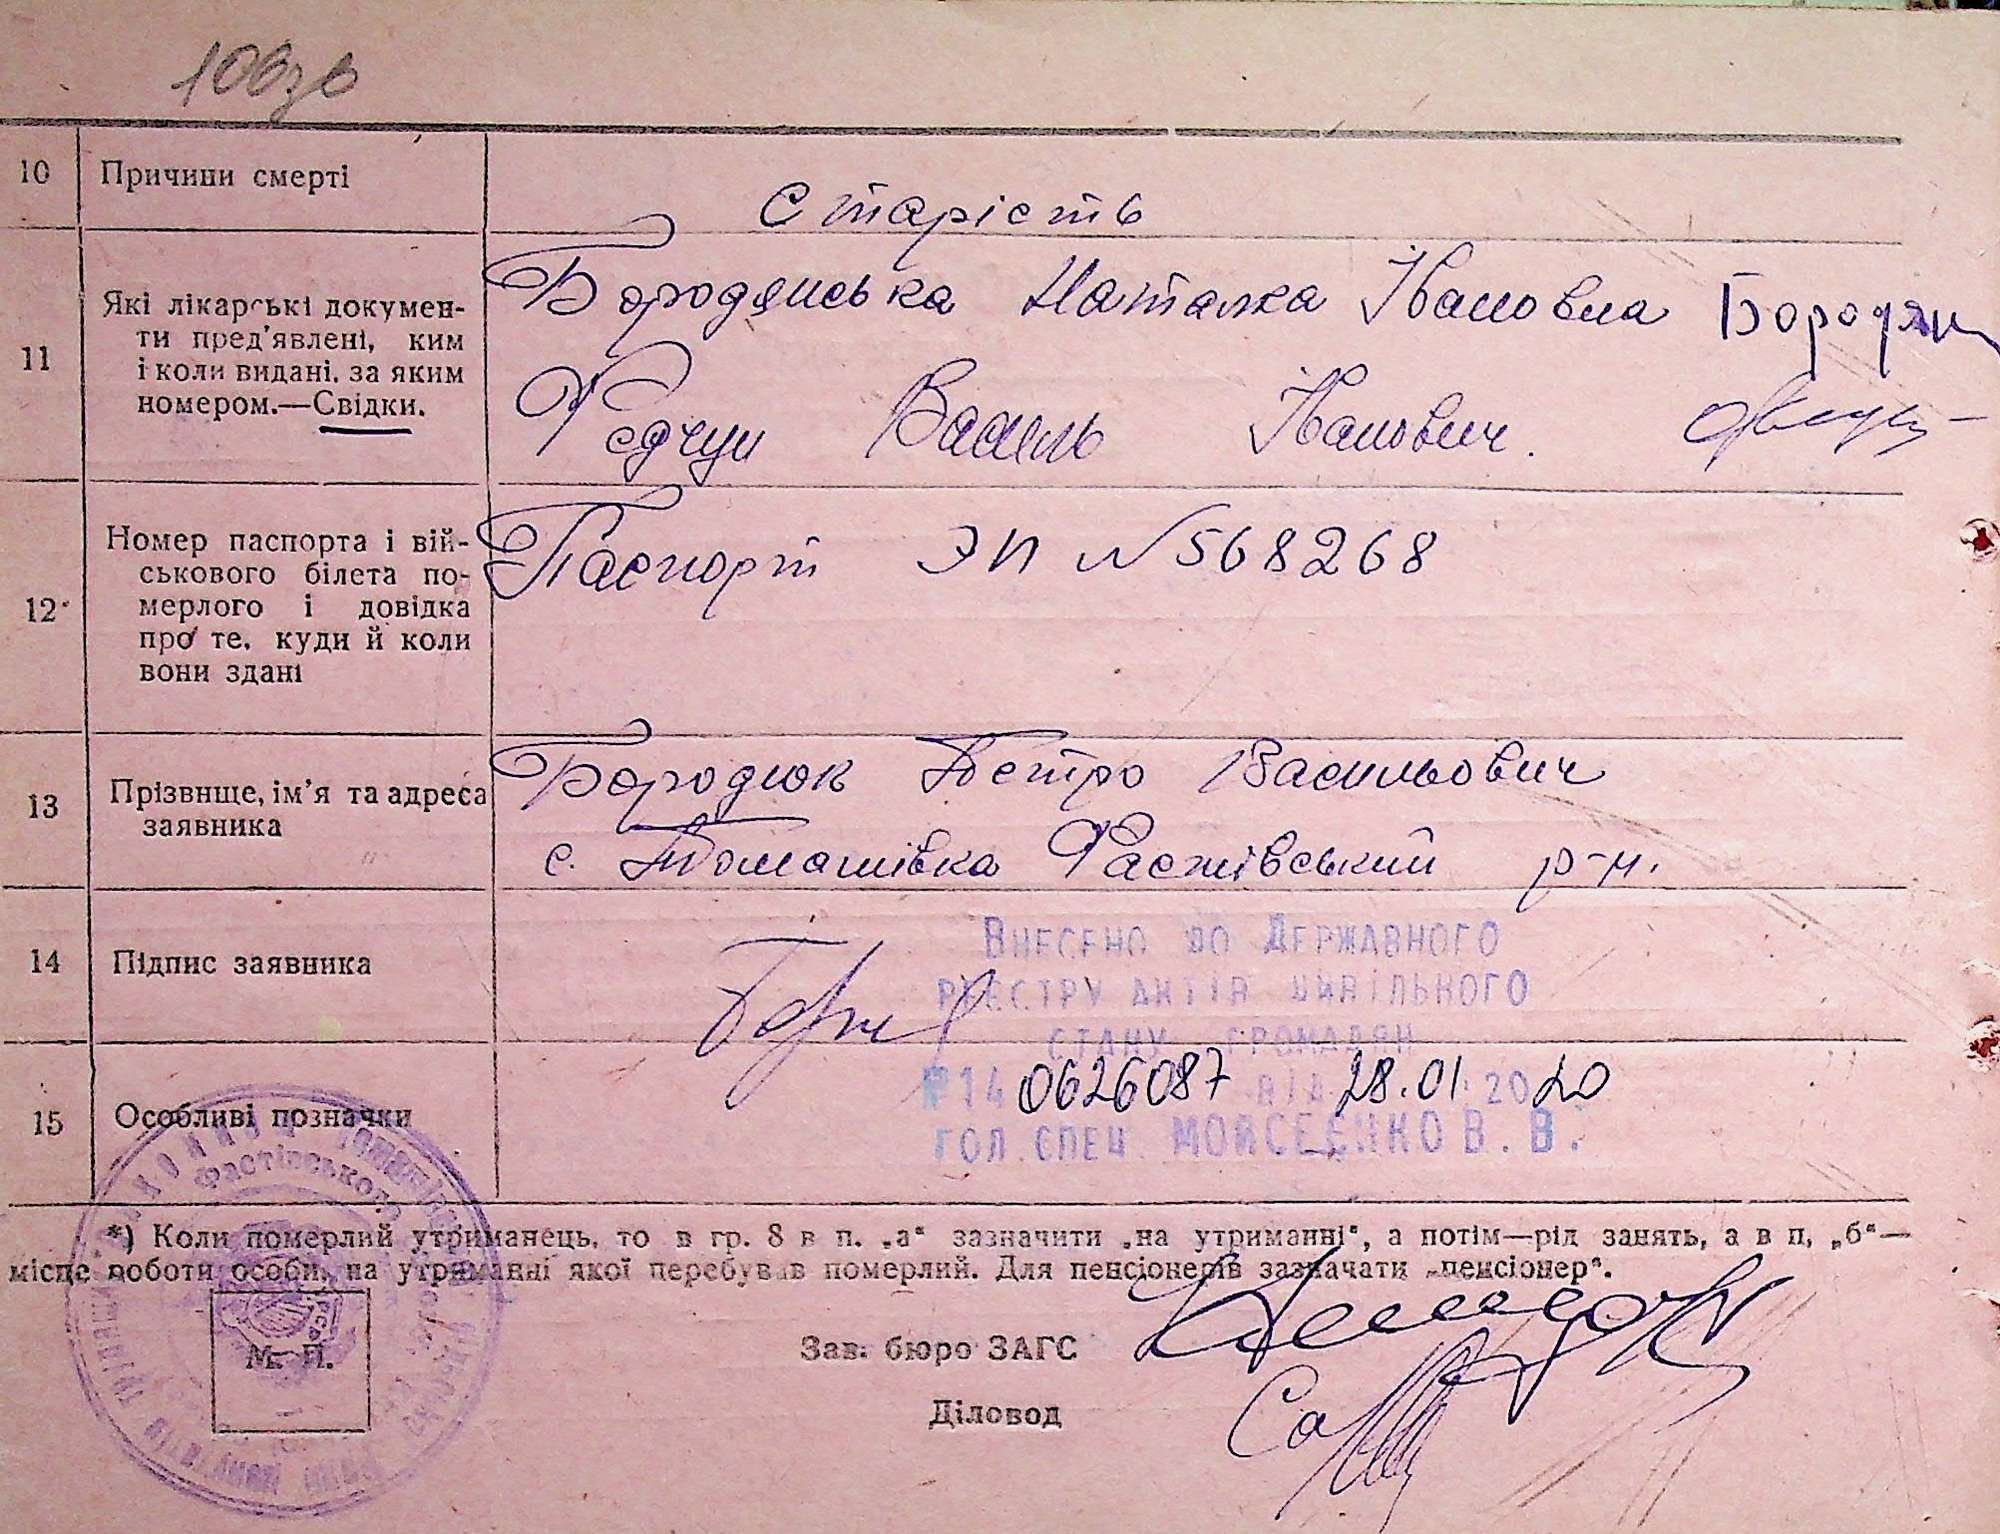 106зв
10 Причини смерті
Старість
11 Які лікарські докумен-
ти пред'явлені, ким
і коли видані, за яким
номером.—Свідки.
Бородянська Наталка Івановна Бородян
Федчун Василь Іванович.
12 Номер паспорта і вій-
ськового білета по-
мерлого і довідка
про те, куди й коли
вони здані
Паспорт ЭП №568268
13 Прізвище, ім'я та адреса
заявника
Бородюк Петро Васильович
с. Томашівка Фастівський р-н.
14 Підпис заявника
Внесено до Державного
реєстру актів цивільного
стану громадян
№14 0626087 від 28.01.2020
гол.спец. Мойсеєнко В.В.
15 Особливі позначки
Фастівського
*) Коли померлий утриманець, то в гр. 8 в п. „а“ зазначити „на утриманні“, а потім—рід занять, а в п. „б“—
місце роботи особи, на утриманні якої перебував померлий. Для пенсіонерів зазначати „пенсіонер“.
М. П.
Зав. бюро ЗАГС
Діловод